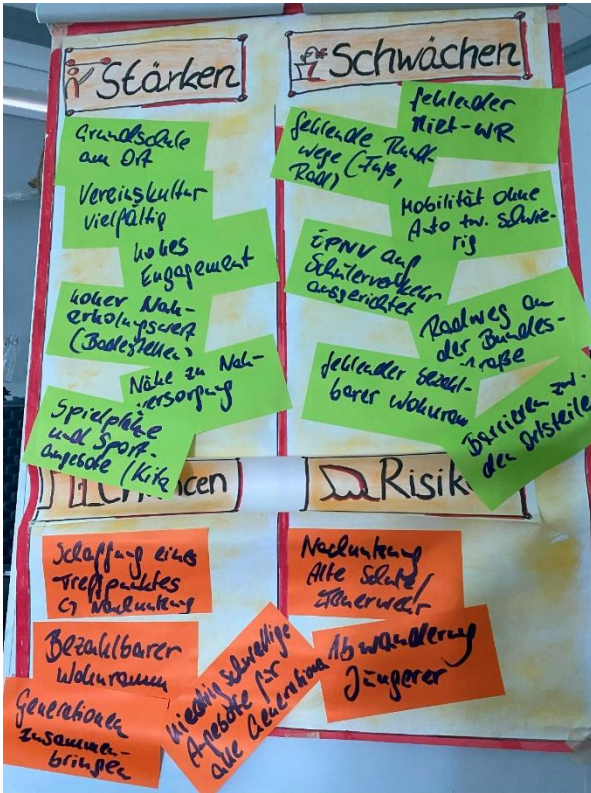 Stärken
Grundschule
am Ort
Vereinskultur
vielfältig
hohes
Engagement
hoher Nah-
erholungswert
(Badestellen)
Nähe zu Nah-
versorgung
Spielplätze
und Sport-
angebote (Kita
Schwächen
fehlender
Miet-WR
fehlende Rund-
wege (Fuß,
Rad)
Mobilität ohne
Auto tw. schwie-
rig
ÖPNV auf
Schülerverkehr
ausgerichtet
Radweg an
der Bundes-
straße
fehlender bezahl-
barer Wohnraum
Barrieren zw.
den Ortsteile
Chancen
Schaffung eines
Treffpunktes
Nachnutzung
Bezahlbarer
Wohnraum
Generationen
zusammen-
bringen
niedrigschwellige
Angebote für
alle Generationen
Risik
Nachnutzung
Alte Schule/
Feuerwehr
Abwanderung
Jüngerer